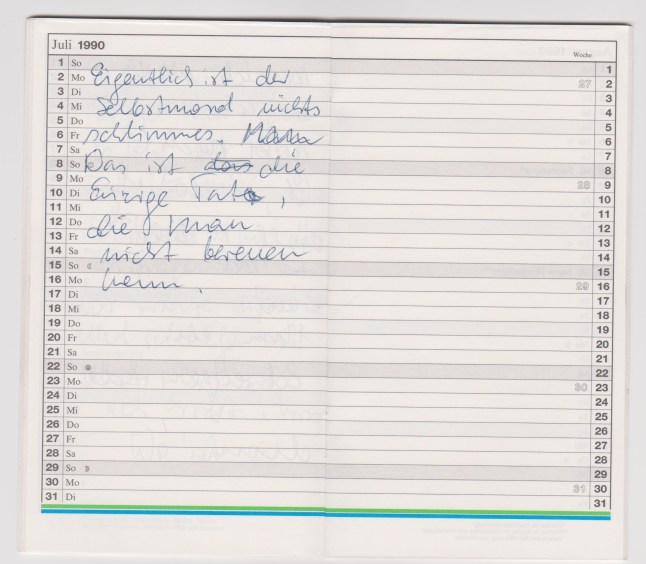 Juli 1990
Woche
1 So 1
2 Mo Eigentlich ist der 27 2
3 Di 3
4 Mi Selbstmord nichts 4
5 Do 5
6 Fr schlimmes. 6
7 Sa 7
8 So Das ist das die 8
9 Mo 28 9
10 Di Einzige Tat, 10
11 Mi 11
12 Do die man 12
13 Fr 13
14 Sa nicht bereuen 14
15 So 15
16 Mo kann. 29 16
17 Di 17
18 Mi 18
19 Do 19
20 Fr 20
21 Sa 21
22 So 22
23 Mo 30 23
24 Di 24
25 Mi 25
26 Do 26
27 Fr 27
28 Sa 28
29 So 29
30 Mo 31 30
31 Di 31